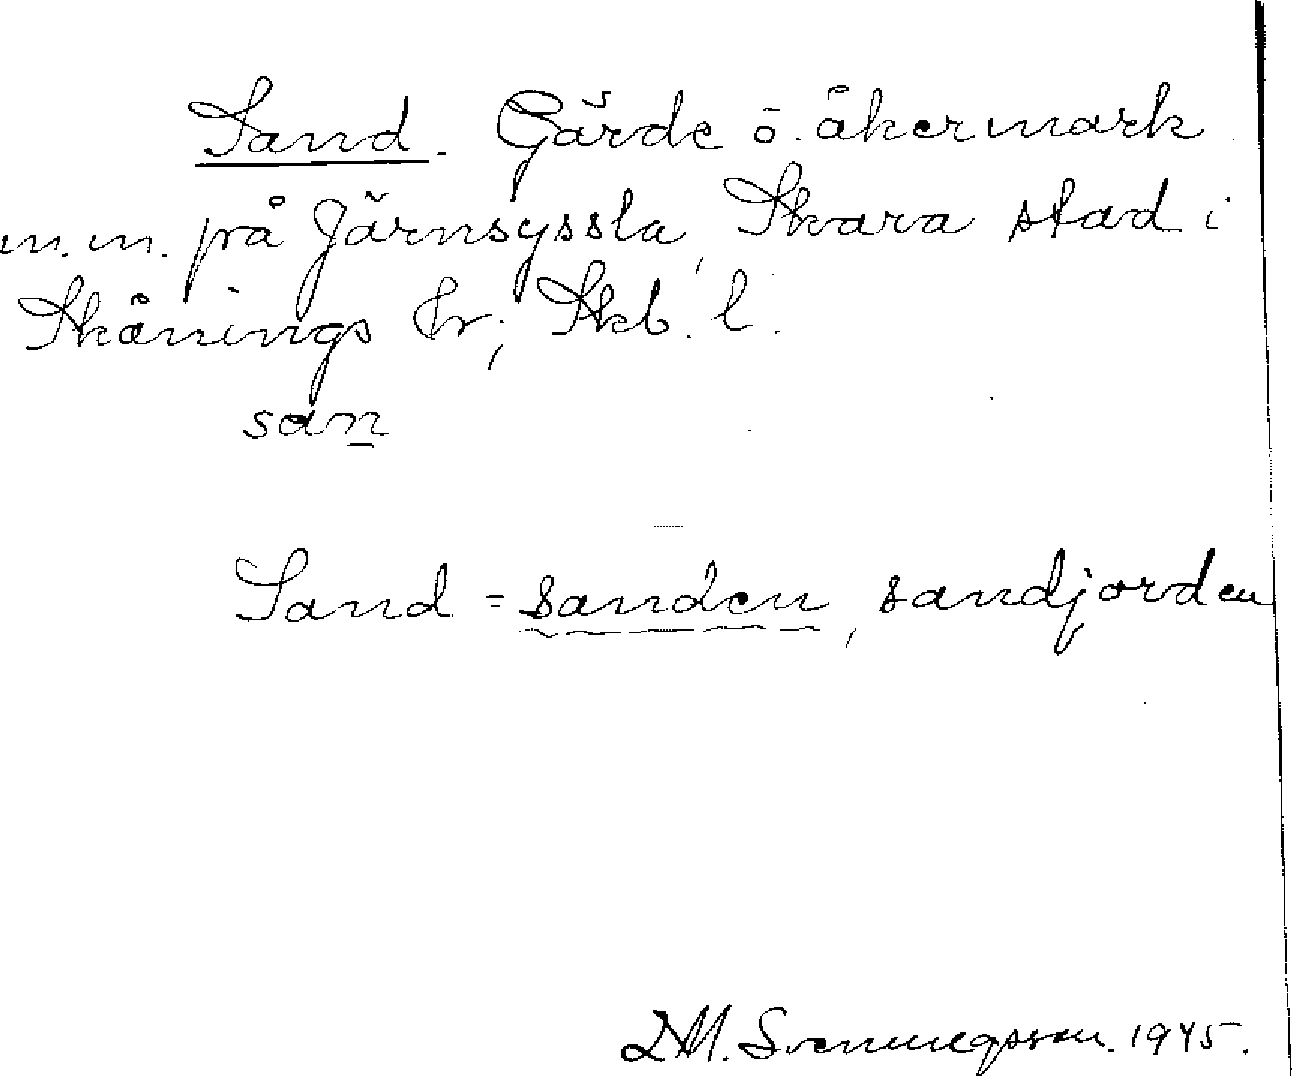 Sand. Gärde o. åkermark
m.m. på Järnsyssla, Skara stad i
Skånings hr; Skb. l.
san
Sand = sanden, sandjorden
D.M. Svenningsson. 1945.